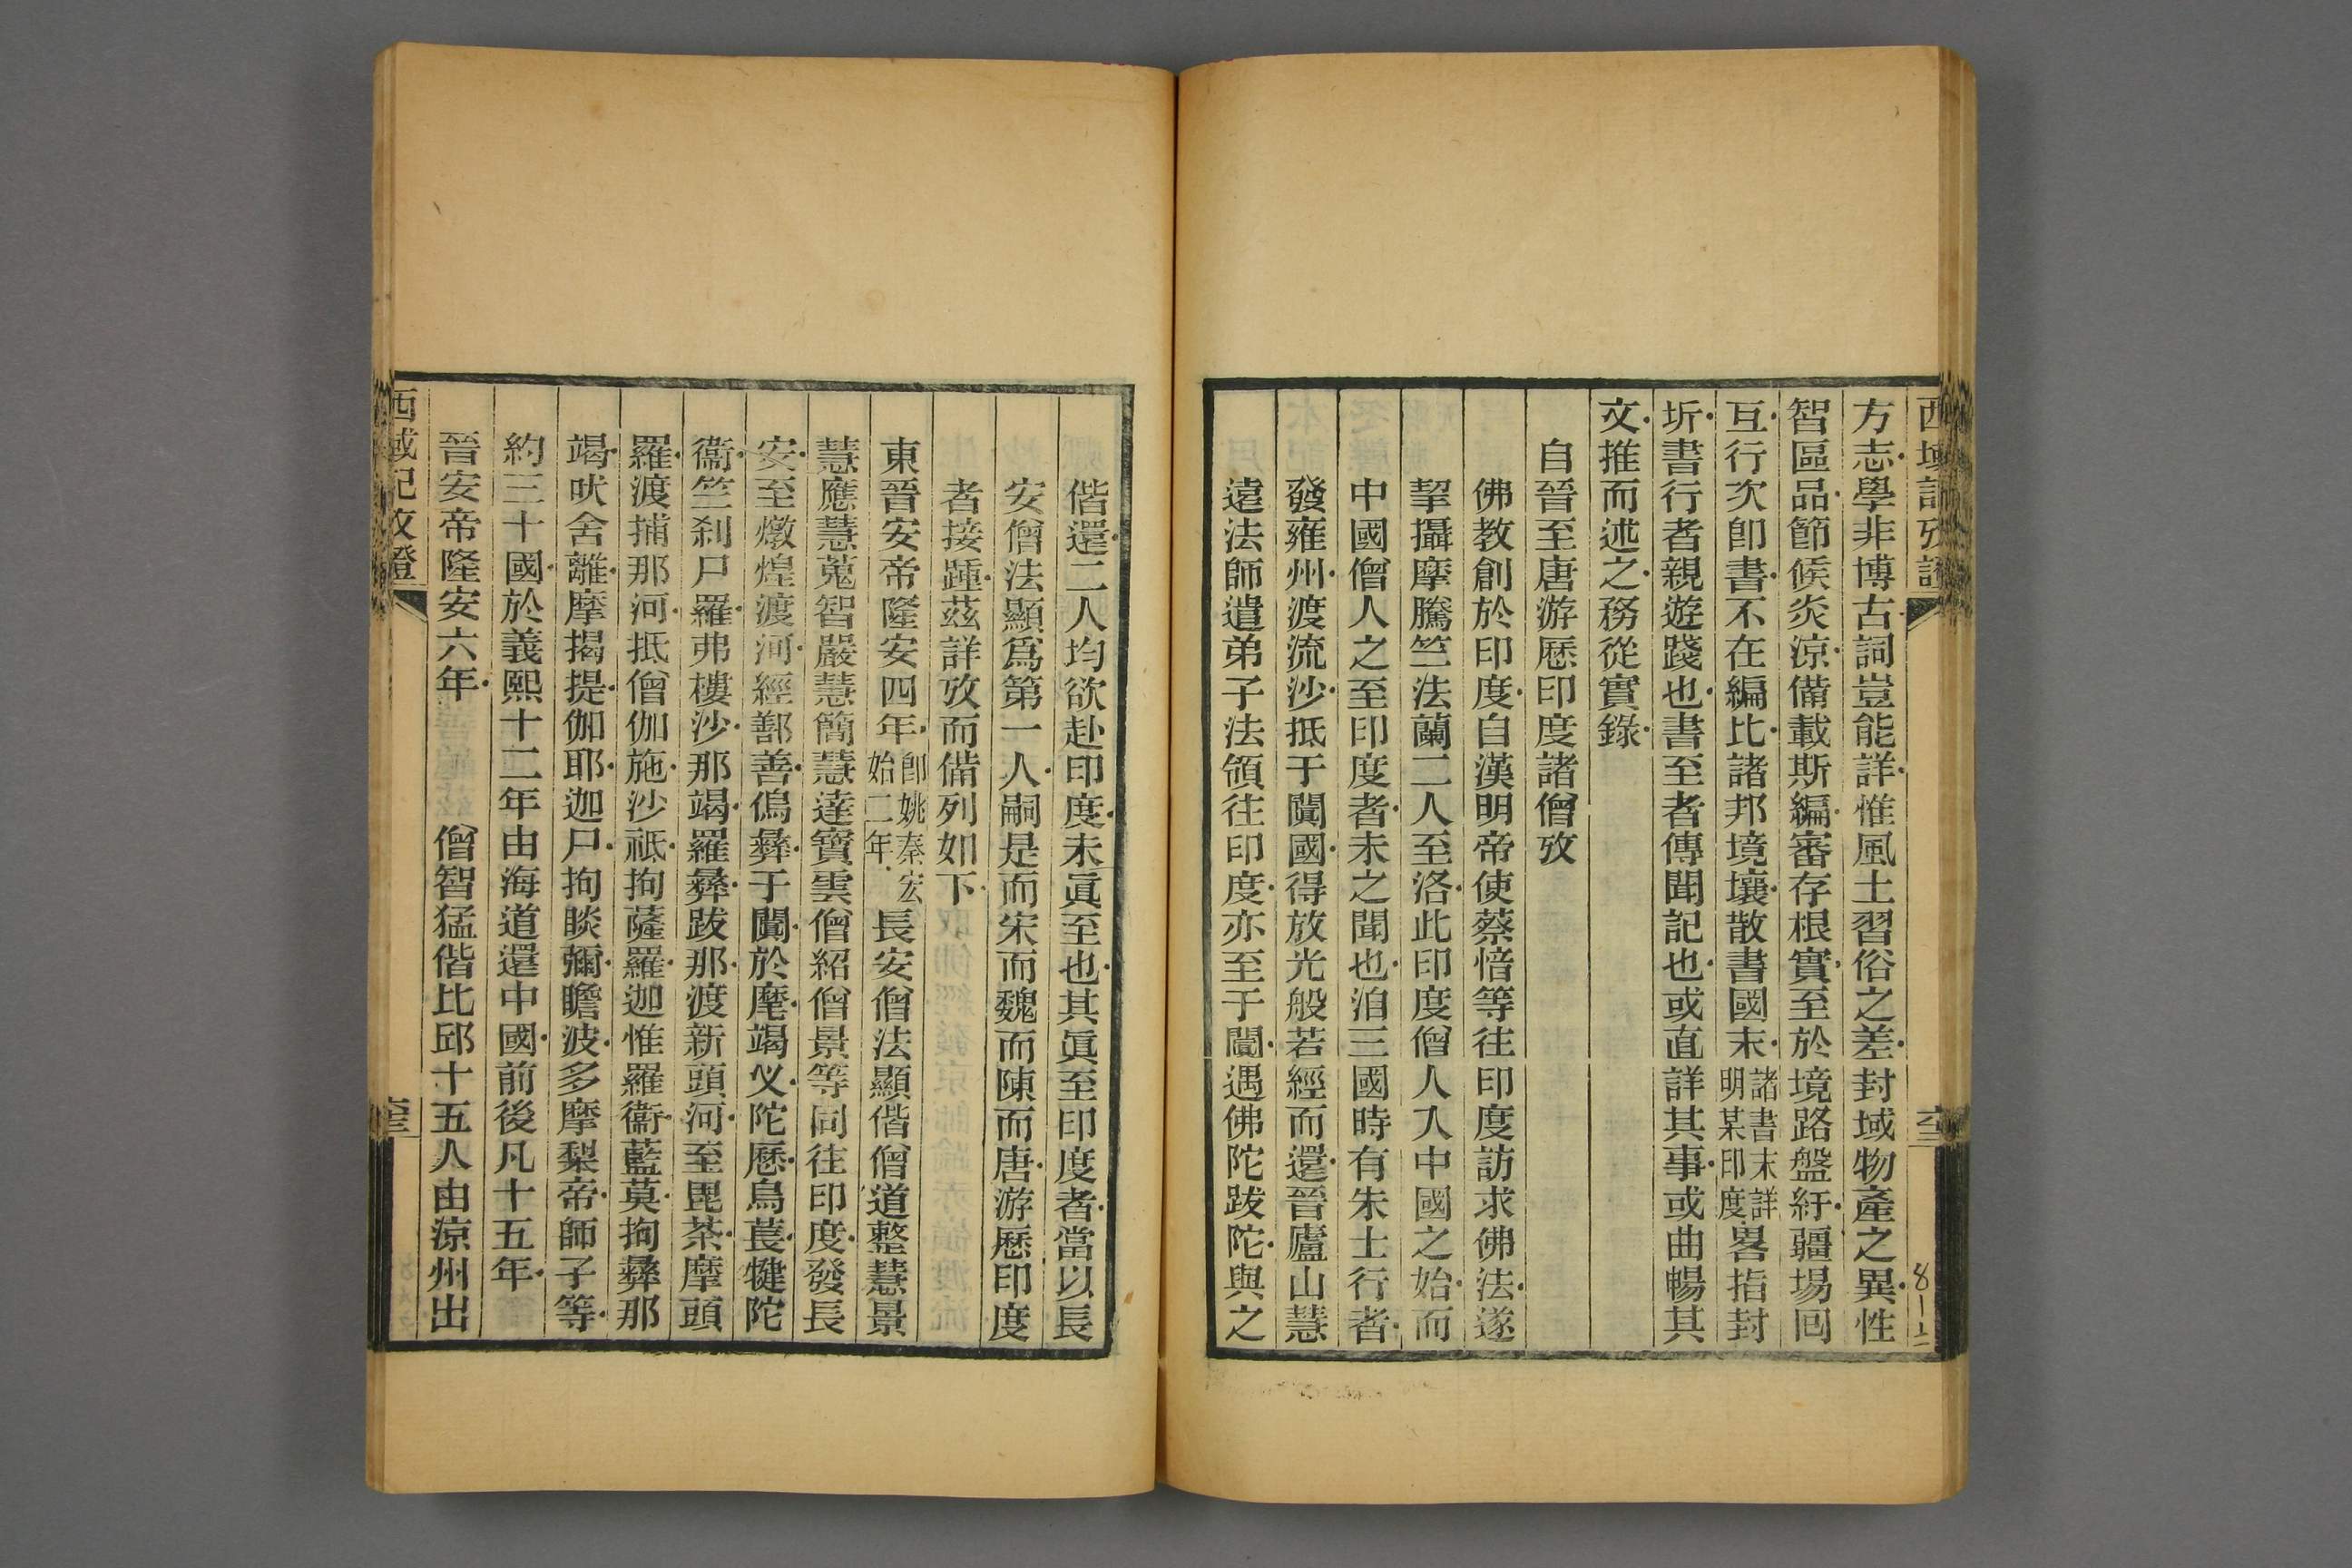 西域記攷證
方志學非博古詞豈能詳惟風土習俗之差封域物產之異性
智區品節候炎涼備載斯編審存根實至於境路盤紆疆埸回
互行次卽書不在編比諸邦境壤散書國末諸書末詳明某印度畧指封
圻書行者親遊踐也書至者傳聞記也或直詳其事或曲暢其
文推而述之務從實錄
自晉至唐游歷印度諸僧攷
佛教創於印度自漢明帝使蔡愔等往印度訪求佛法遂
挈攝摩騰竺法蘭二人至洛此印度僧人入中國之始而
中國僧人之至印度者未之聞也洎三國時有朱士行者
發雍州渡流沙抵于闐國得放光般若經而還晉廬山慧
遠法師遣弟子法領往印度亦至于闐遇佛陀跋陀與之
偕還二人均欲赴印度未眞至也其眞至印度者當以長
安僧法顯爲第一人嗣是而宋而魏而陳而唐游歷印度
者接踵茲詳攷而偹列如下
東晉安帝隆安四年卽姚秦宏始二年長安僧法顯偕僧道整慧景
慧應慧嵬智嚴慧簡慧達寶雲僧紹僧景等同往印度發長
安至燉煌渡河經鄯善僞彝于闐於麾竭义陀歷烏萇犍陀
衞竺刹尸羅弗樓沙那竭羅彝跋那渡新頭河至毘茶摩頭
羅渡捕那河抵僧伽施沙祗拘薩羅迦惟羅衞藍莫拘彝那
竭吠舍離摩揭提伽耶迦尸拘睒彌瞻波多摩梨帝師子等
約三十國於義熙十二年由海道還中國前後凡十五年
晉安帝隆安六年　僧智猛偕比邱十五人由涼州出
西域記攷證